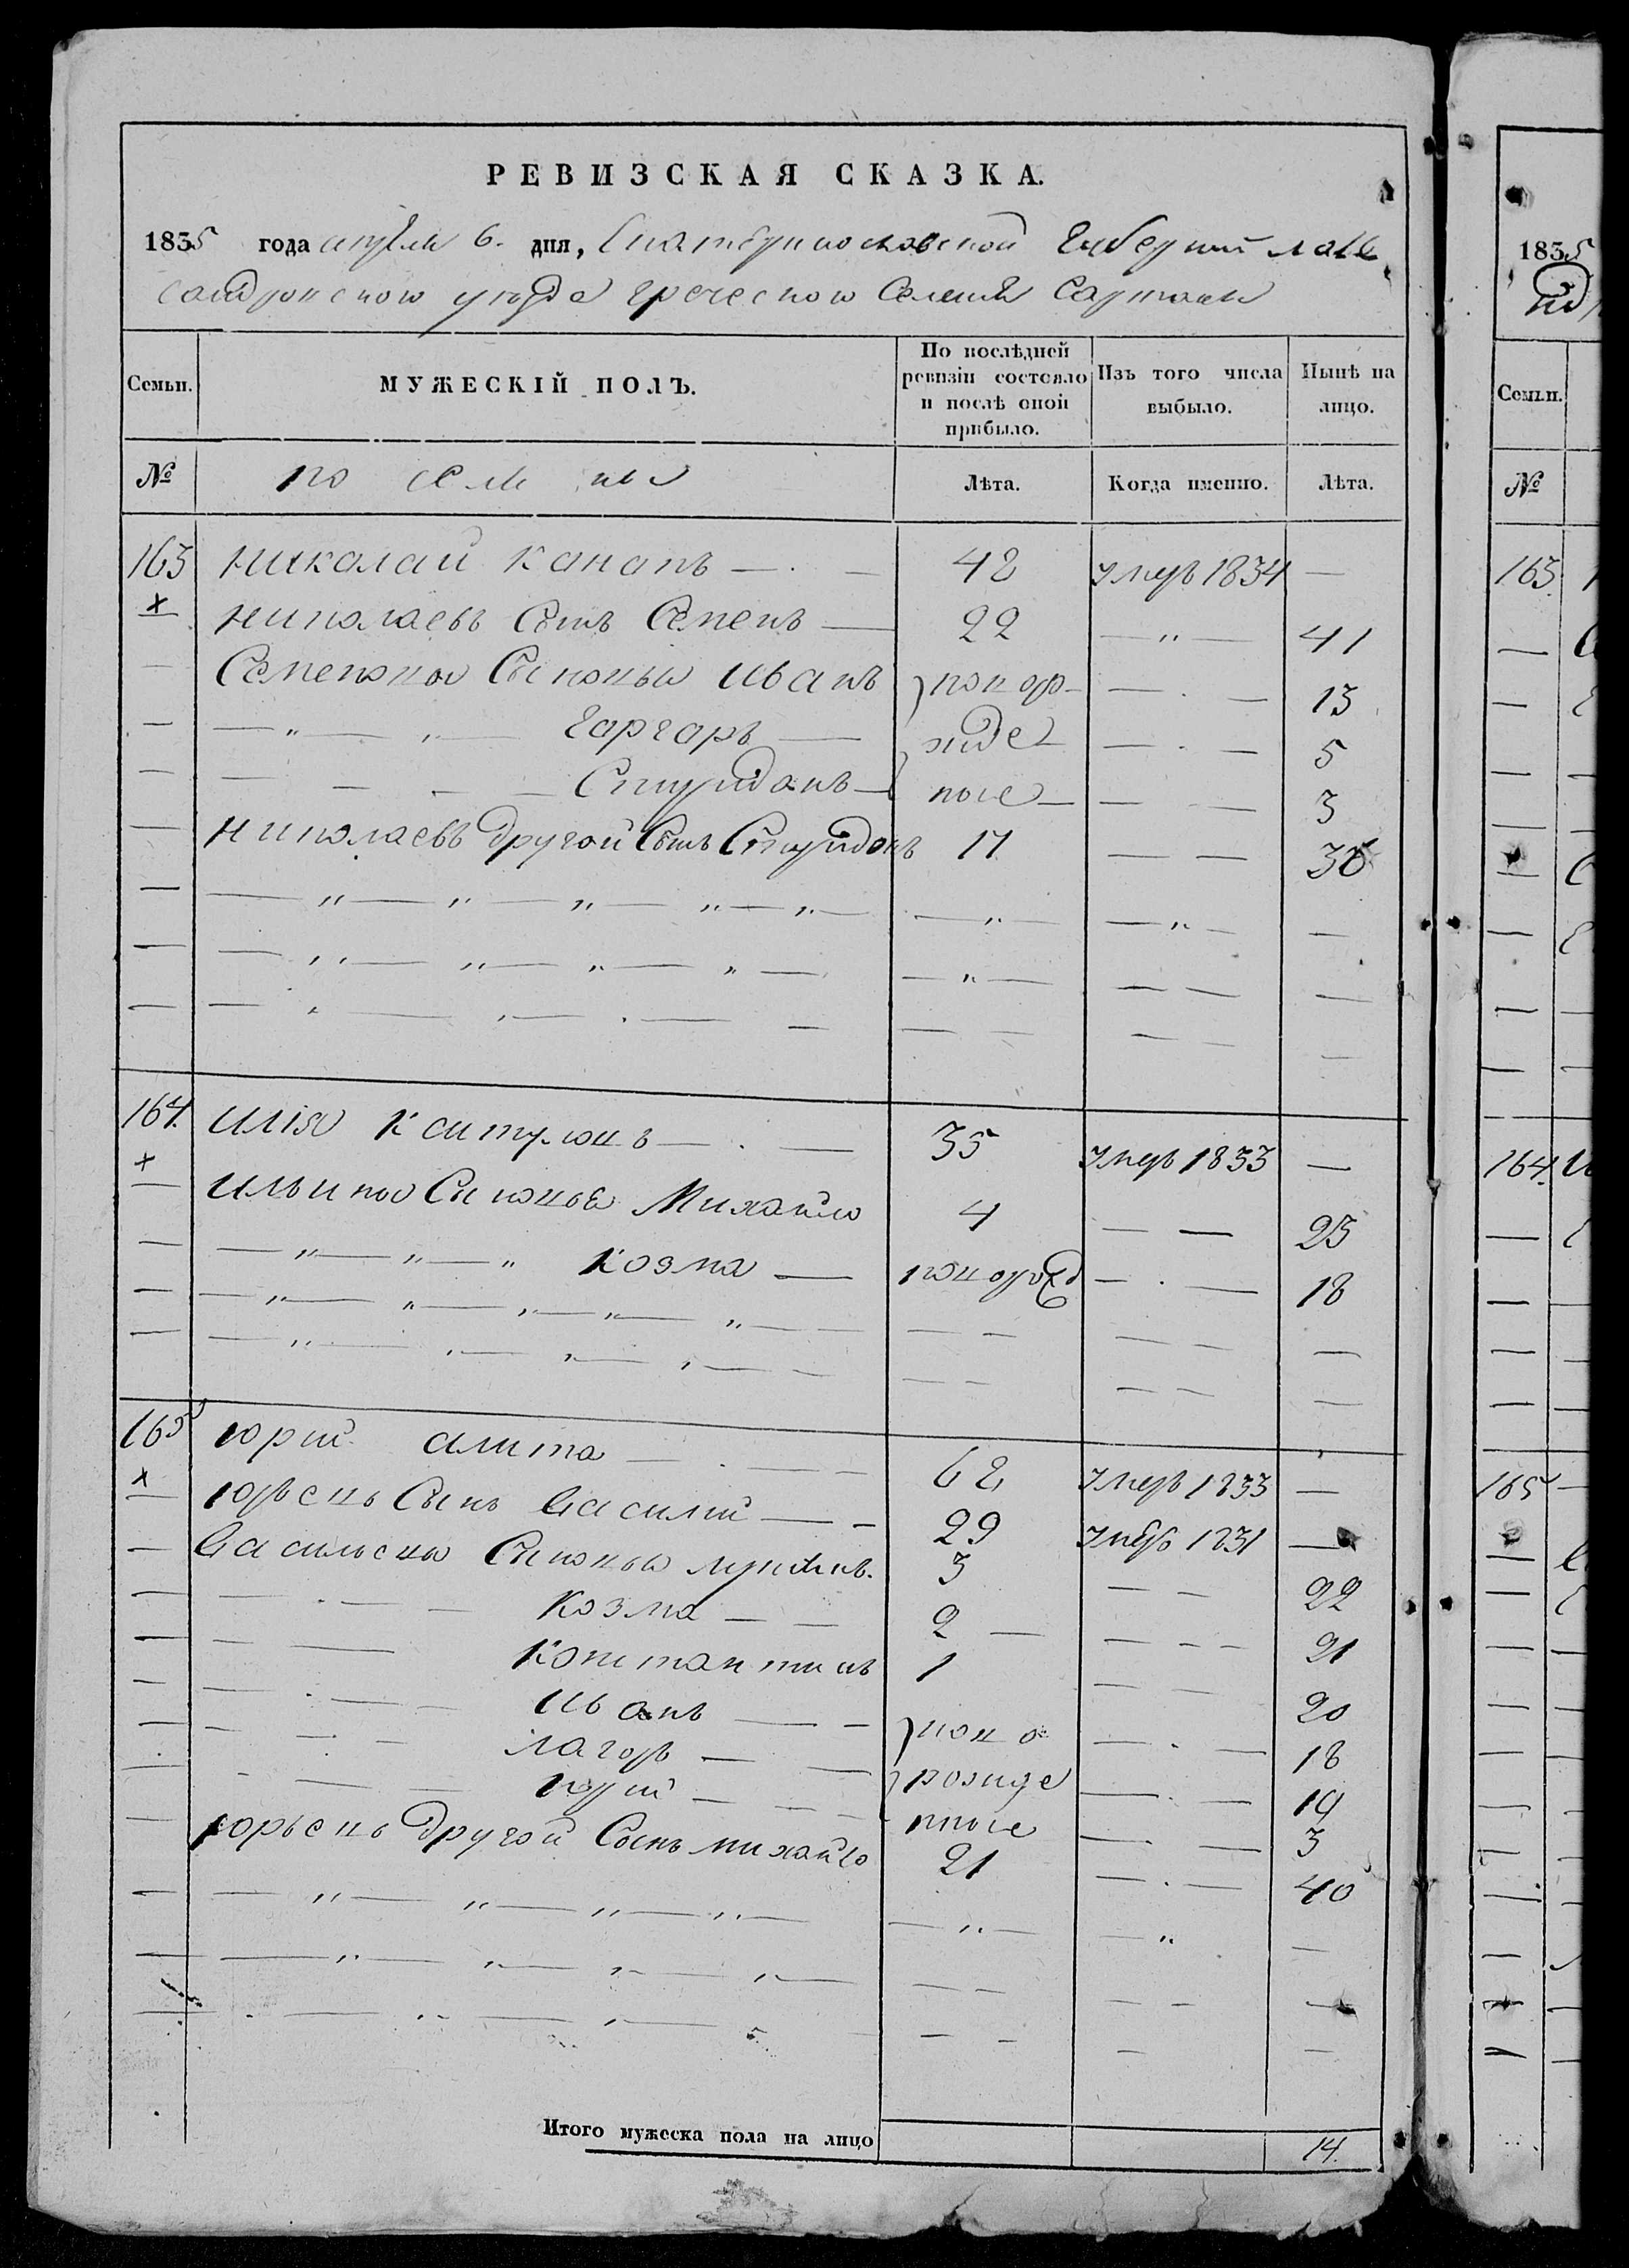 РЕВИЗСКАЯ СКАЗКА.
1835 года апреля 6. дня, Екатеринославской Губернии Алек
сандровского уезда греческого Селения Сартаны
Семьи. МУЖЕСКІЙ ПОЛЪ. По послѣдней ревизіи состояло и послѣ оной прибыло. Изъ того числа выбыло. Нынѣ на лицо.
№ Лѣта. Когда именно. Лѣта.
163 Николай Канапъ — 48 умеръ 1834 —
Николаевъ Сынъ Семенъ — 22 — " — 41
Семеновы Сыновья Иванъ новоро- — 13
— " — Гаргоръ — жде- — 5
Спиридонъ — ные — 3
Николаевъ другой Сынъ Спиридонъ 17 — 36
164. Илія — 35 умеръ 1833 —
Ильины Сыновья Михайло 4 — 23
— " — " — " Козма — новорожд — 18
165 Юрий — 62 умеръ 1833 —
Юрьевъ Сынъ Василий — 29 умеръ 1831 —
Васильевы Сыновья 3 — 22
Козма — 2 — 21
Константинъ 1 — 20
Иванъ — ново — 18
Лагоръ — рожде — 19
Юрий — нные — 3
Юрьевъ другой Сынъ Михайло 21 — 40
Итого мужеска пола на лицо 14.
1835
Семьи.
№
163.
164.
165